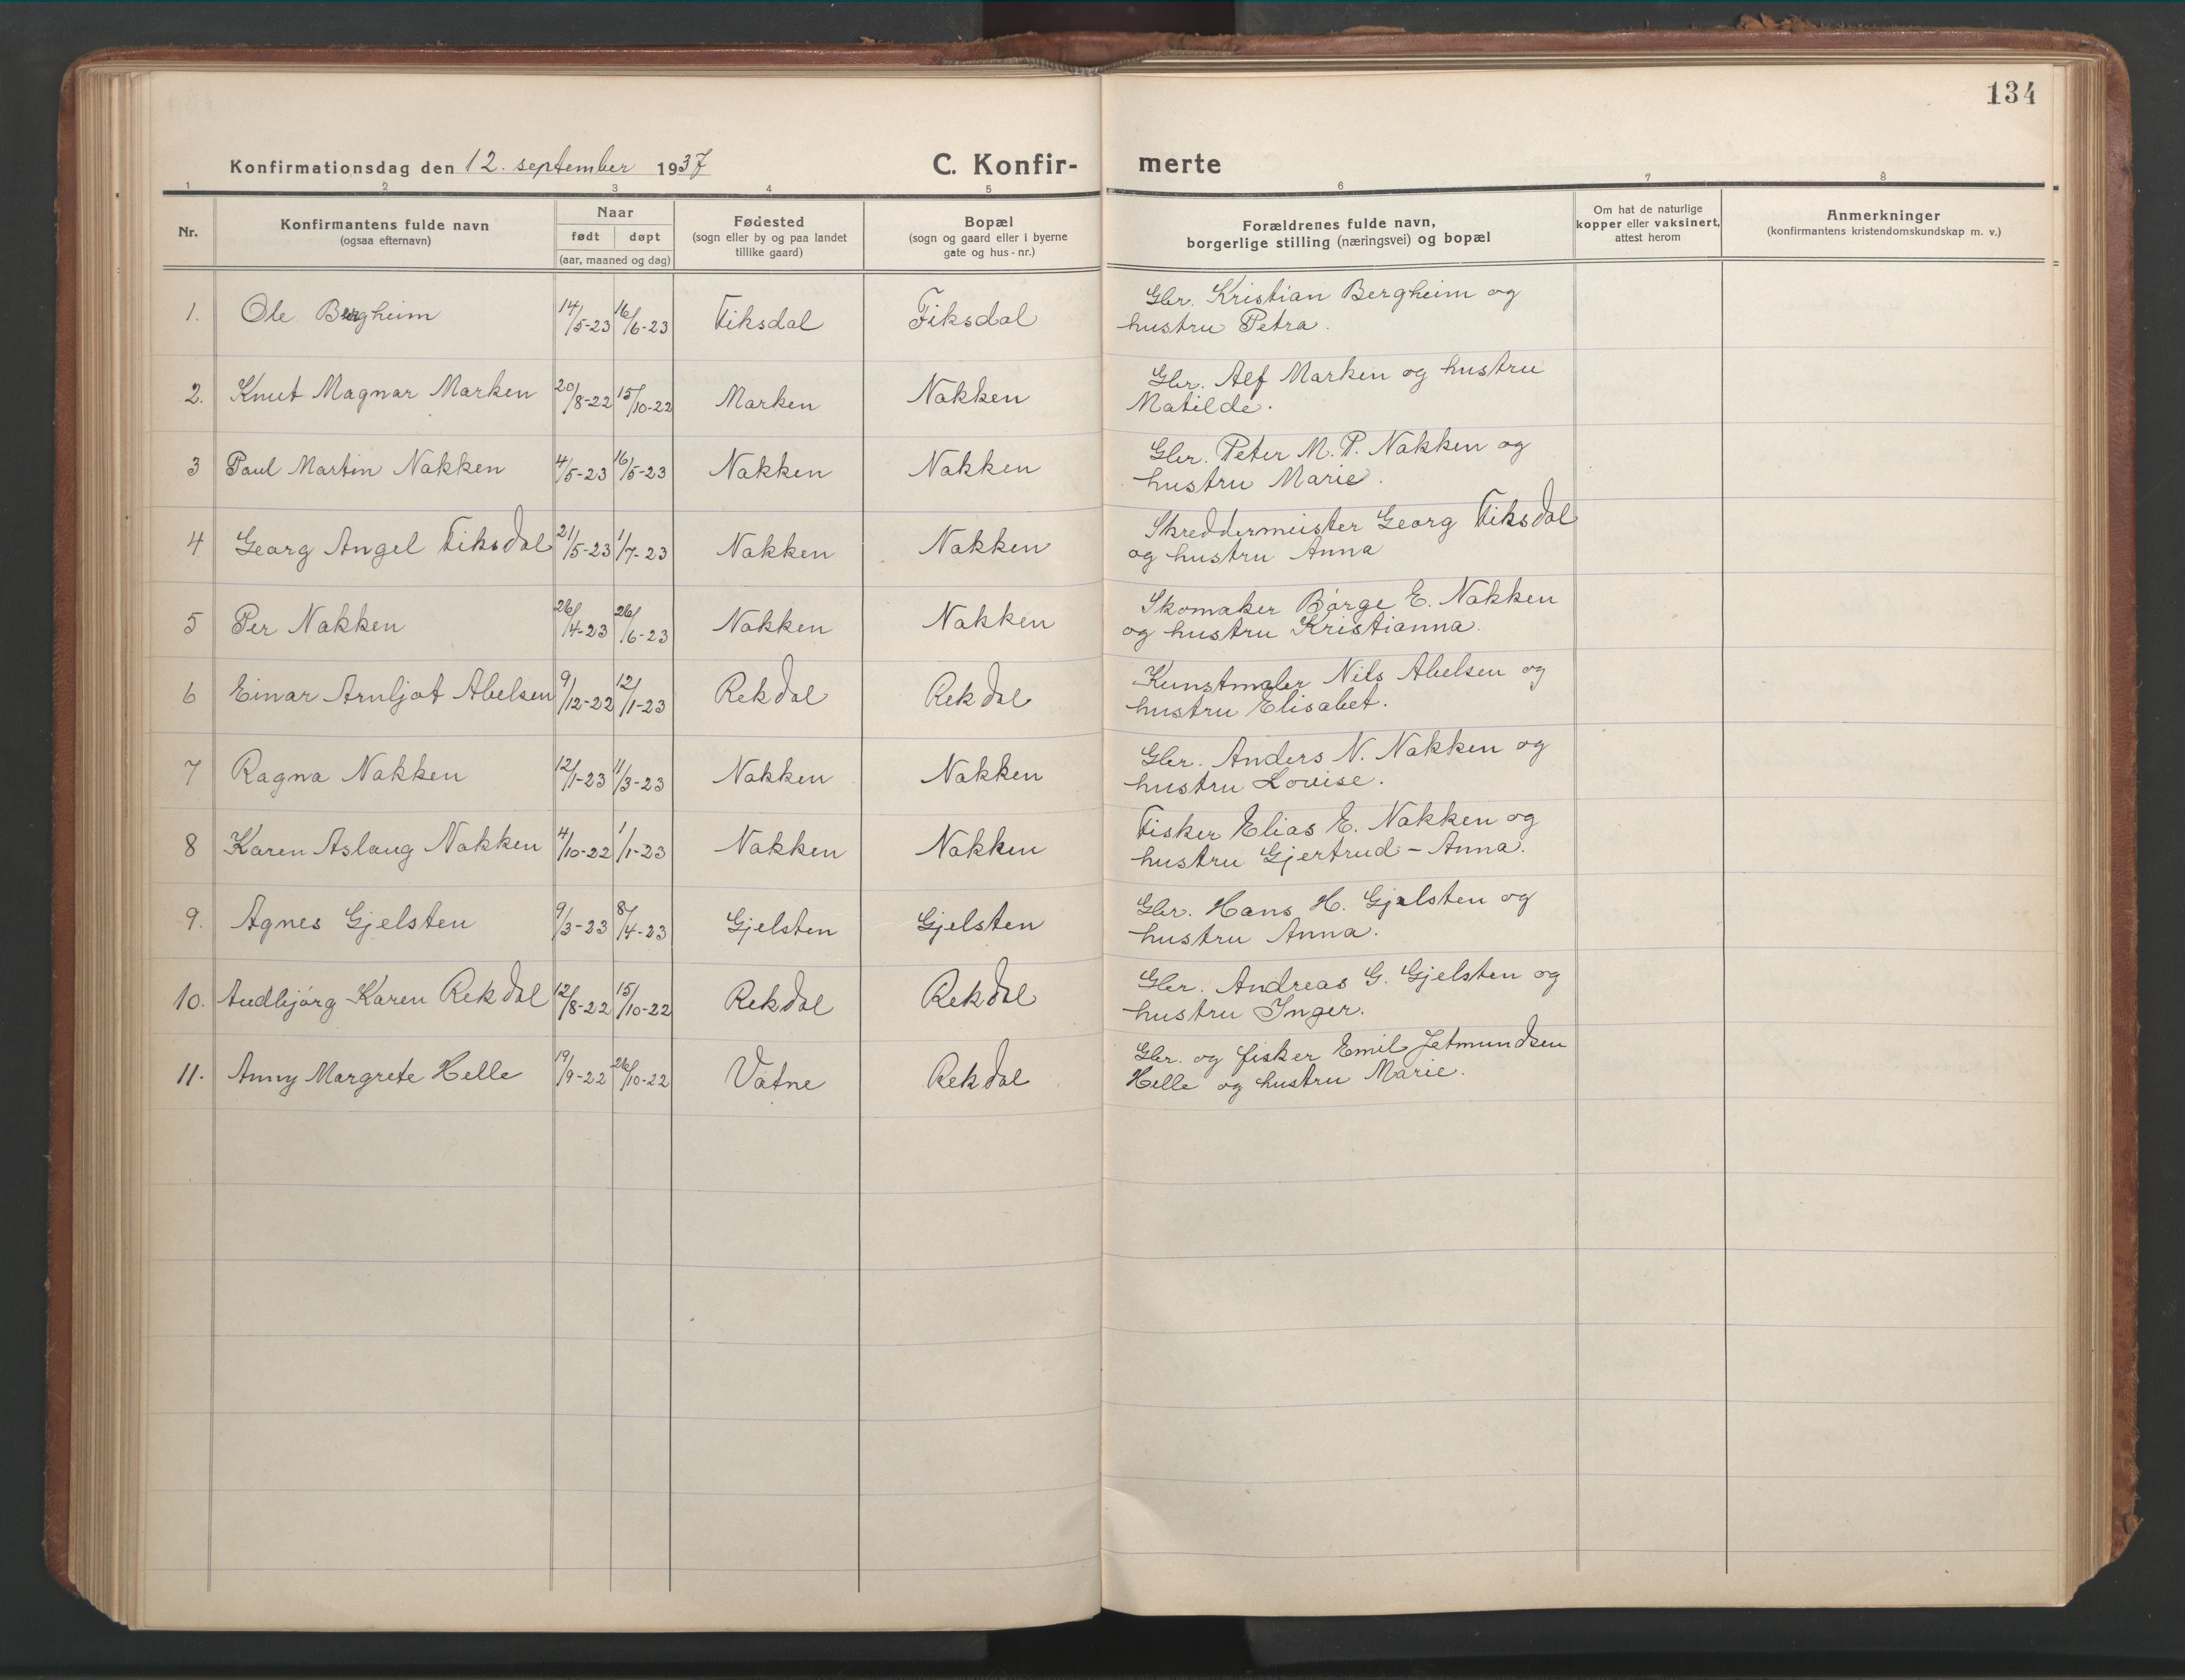 134
Konfirmationsdag den 12. september 1937 C. Konfir-merte
1 2 3 4 5 6 7 8
Nr.
Konfirmantens fulde navn
(ogsaa efternavn)
Naar
født døpt
(aar, maaned og dag)
Fødested
(sogn eller by og paa landet
tillike gaard)
Bopæl
(sogn og gaard eller i byerne
gate og hus-nr.)
Forældrenes fulde navn,
borgerlige stilling (næringsvei) og bopæl
Om hat de naturlige
kopper eller vaksinert,
attest herom
Anmerkninger
(konfirmantens kristendomskundskap m. v.)
1. Ole Bergheim 14/5-23 16/6-23 Fiksdal Fiksdal Gbr. Kristian Bergheim og
hustru Petra.
2. Knut Magnar Marken 20/8-22 15/10-22 Marken Nakken Gbr. Alf Marken og hustru
Matilde.
3 Paul Martin Nakken 4/5-23 16/5-23 Nakken Nakken Gbr. Peter M. P. Nakken og
hustru Marie.
4 Georg Angel Fiksdal 21/5-23 1/7-23 Nakken Nakken Skreddermeister Georg Fiksdal
og hustru Anna
5 Per Nakken 26/4-23 26/6-23 Nakken Nakken Skomaker Børge E. Nakken
og hustru Kristianna.
6 Einar Arnljot Abelsen 9/12-22 12/1-23 Rekdal Rekdal Kunstmaler Nils Abelsen og
hustru Elisabet.
7 Ragna Nakken 12/1-23 11/3-23 Nakken Nakken Gbr. Anders N. Nakken og
hustru Lovise.
8 Karen Aslaug Nakken 4/10-22 1/1-23 Nakken Nakken Fisker Elias E. Nakken og
hustru Gjertrud-Anna.
9. Agnes Gjelsten 9/3-23 8/4-23 Gjelsten Gjelsten Gbr. Hans H. Gjelsten og
hustru Anna.
10. Audbjørg-Karen Rekdal 12/8-22 15/10-22 Rekdal Rekdal Gbr. Andreas G. Gjelsten og
hustru Inger.
11. Anny Margrete Helle 19/9-22 26/10-22 Vatne Rekdal Gbr. og fisker Emil Jetmundsen
Helle og hustru Marie.